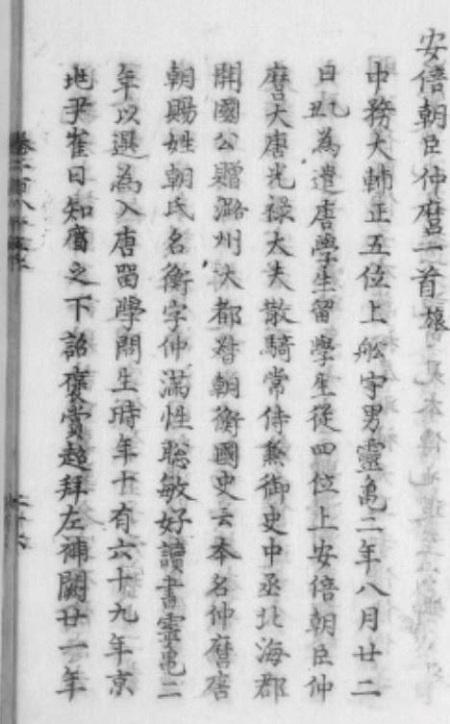 安倍朝臣仲麿一首旅
中務大輔正五位上舩守男靈亀二年八月廿二
日乱為遣唐學生留學生從四位上安倍朝臣仲
麿大唐光禄大夫散騎常侍兼御史中丞北海郡
開國公贈潞州大都督朝衡國史云本名仲麿唐
朝賜姓朝氏名衡字仲満性聡敏好讀書靈亀二
年以選為入唐留學問生時年十有六十九年京
地尹崔日知薦之下詔褒賞超拜左補闕廿一年